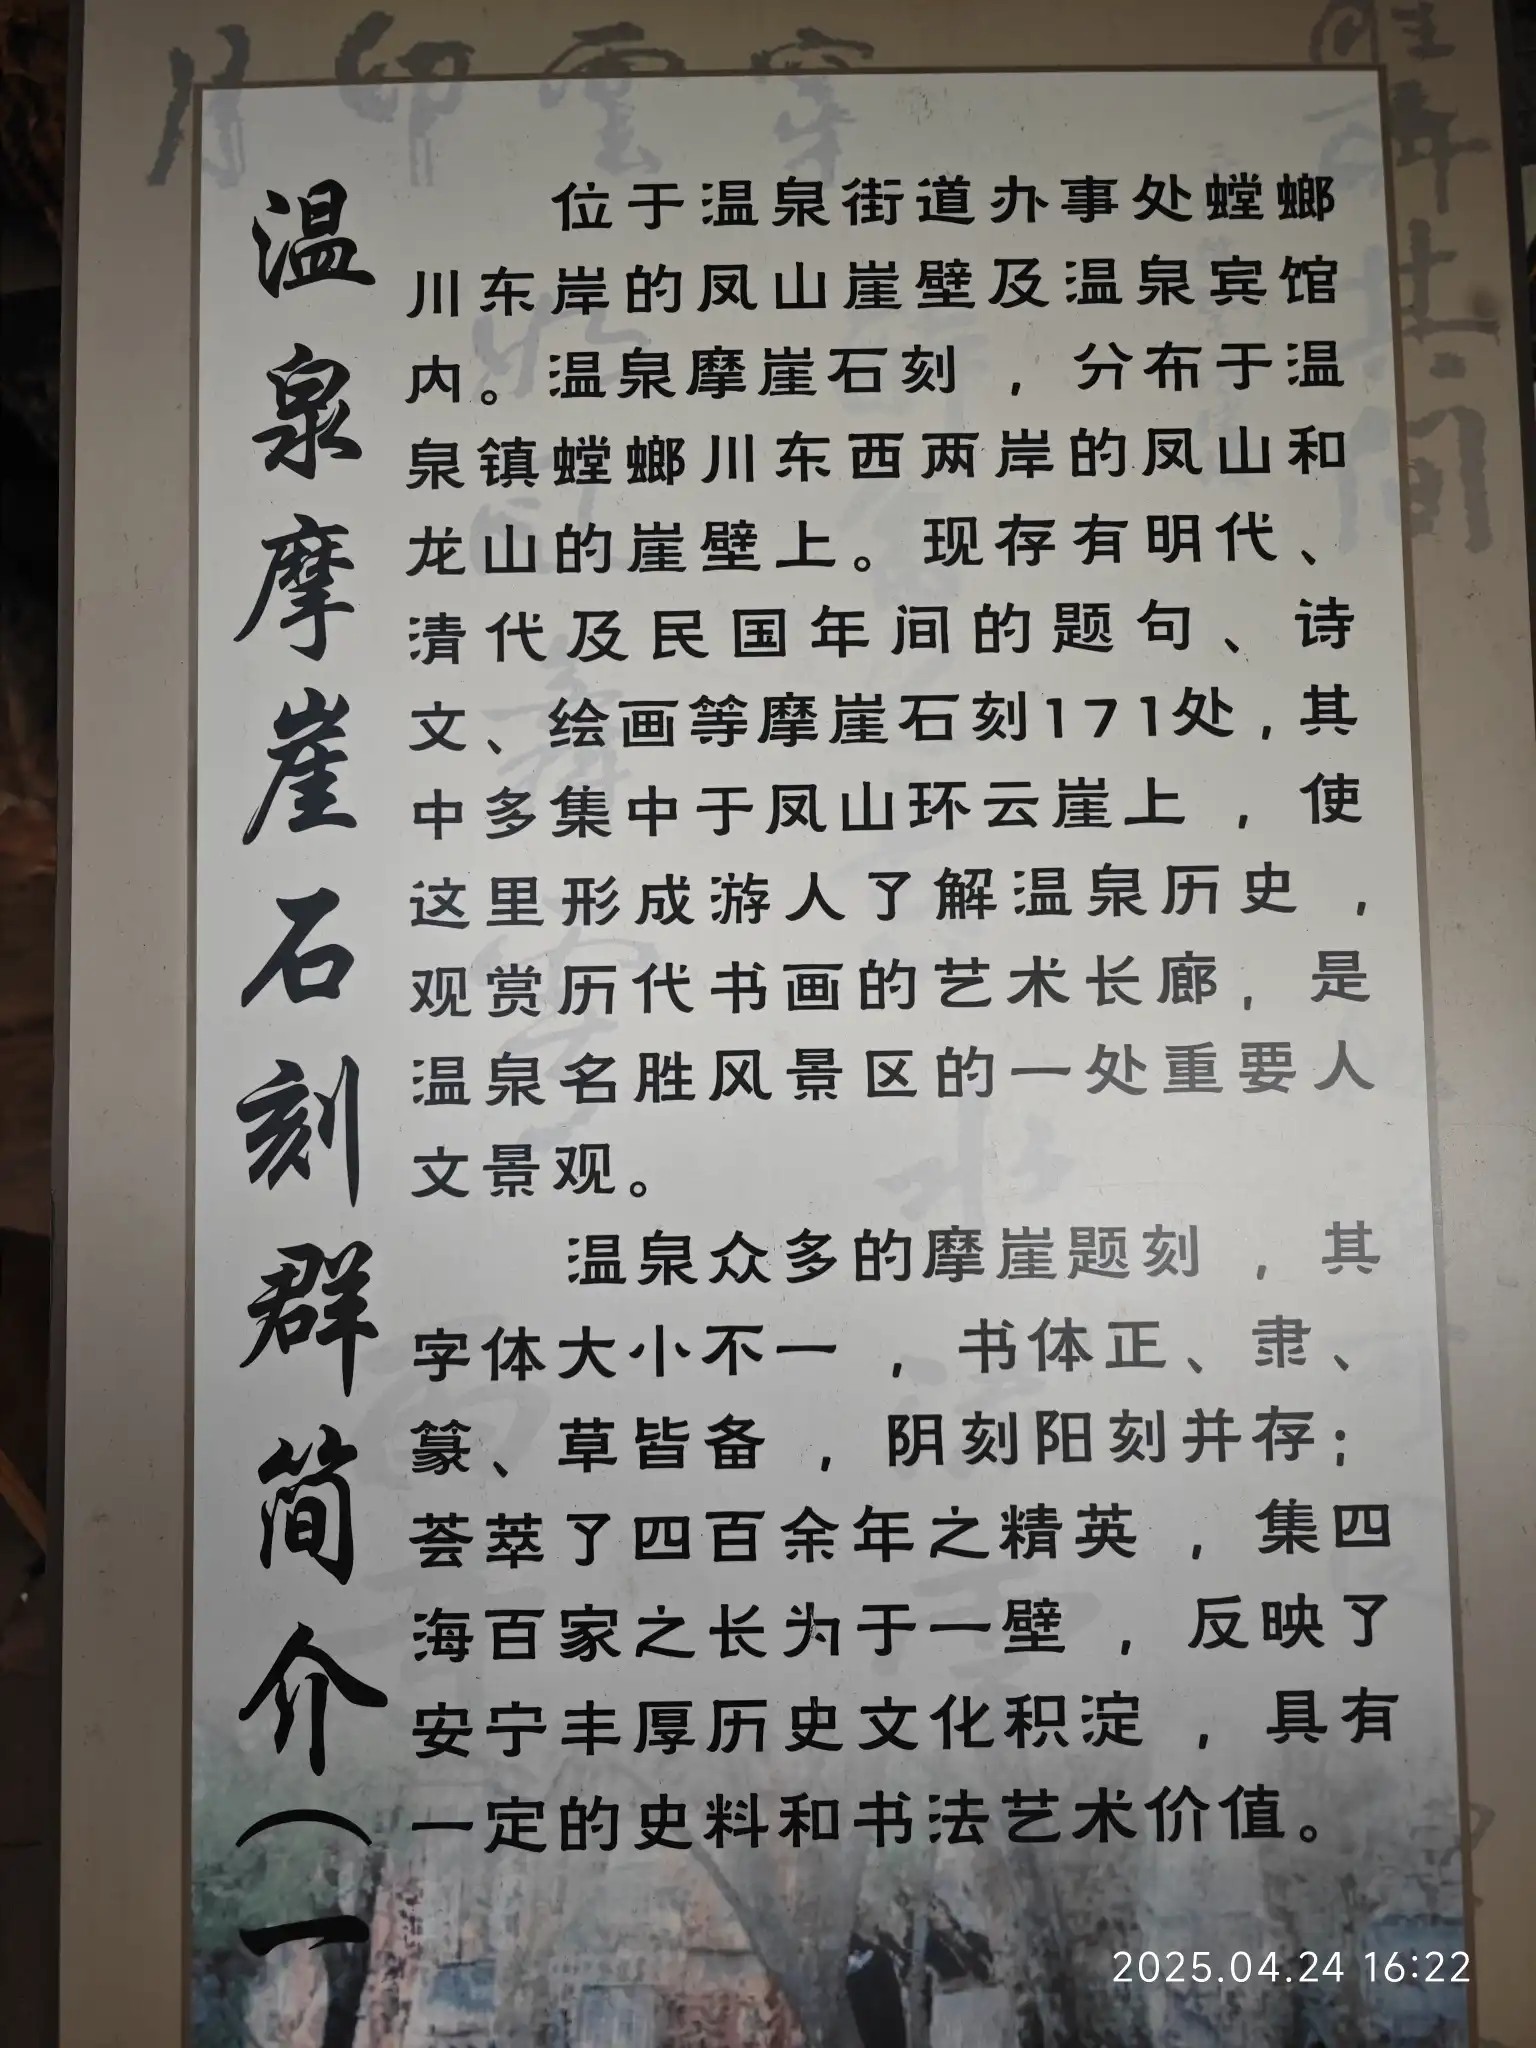 温泉摩崖石刻群简介（一
位于温泉街道办事处螳螂
川东岸的凤山崖壁及温泉宾馆
内。温泉摩崖石刻，分布于温
泉镇螳螂川东西两岸的凤山和
龙山的崖壁上。现存有明代、
清代及民国年间的题句、诗
文、绘画等摩崖石刻171处，其
中多集中于凤山环云崖上，使
这里形成游人了解温泉历史，
观赏历代书画的艺术长廊，是
温泉名胜风景区的一处重要人
文景观。
温泉众多的摩崖题刻，其
字体大小不一，书体正、隶、
篆、草皆备，阴刻阳刻并存；
荟萃了四百余年之精英，集四
海百家之长为于一壁，反映了
安宁丰厚历史文化积淀，具有
一定的史料和书法艺术价值。
2025.04.24 16:22